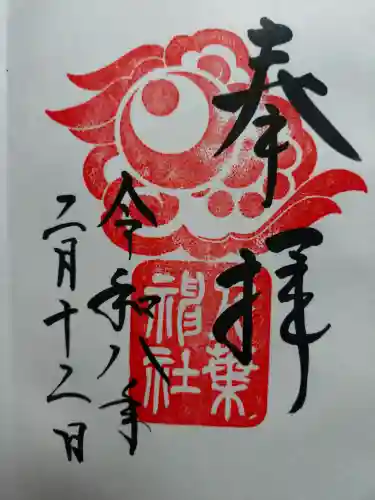 奉拝
葉神社
令和八年
二月十二日